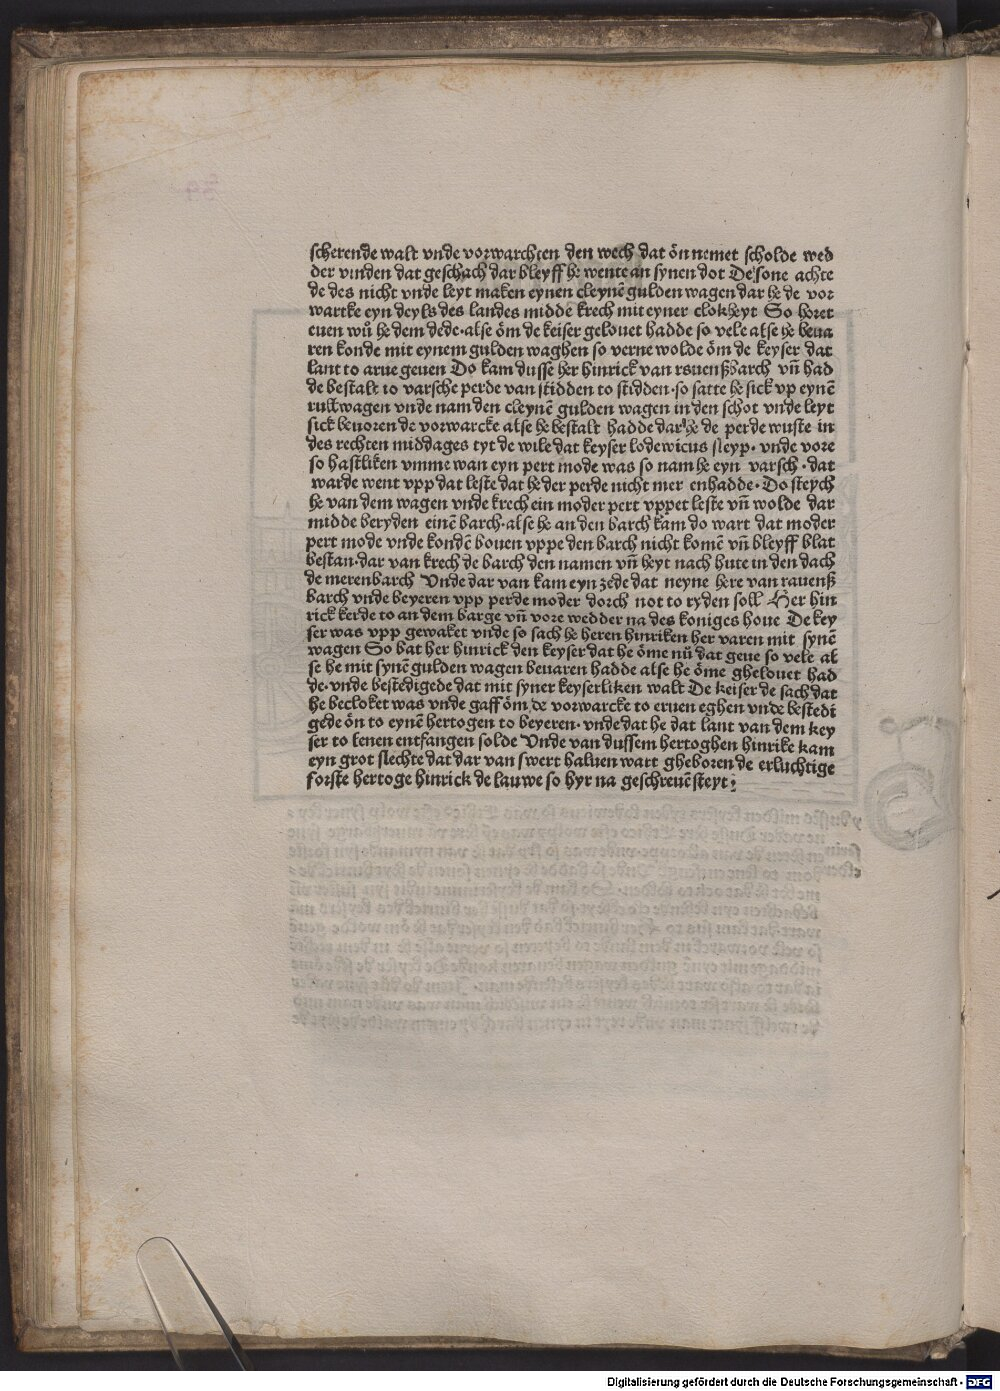 scherende walt vnde vorwarchten den wech dat ōn nemet scholde wed
der vinden dat geschach dar bleyff he wente an synen dot De sone achte
de des nicht vnde leyt maken eynen cleynē gulden wagen dar he de vor
wartke eyn deyls des landes middē krech mit eyner clokheyt So horet
euen wů he dem dede·alse ōm de keiser gelouet hadde so vele alse he beua
ren konde mit eynem gulden waghen so verne wolde ōm de keyser dat
lant to arue geuen Do kam dusse her hinrick van rauenßbarch vn̄ had
de bestalt io varsche perde van stidden to stidden·so satte he sick vp eynē
rullwagen vnde nam den cleynē gulden wagen in den schot vnde leyt
sick beuoren de vorwarcke alse he bestalt hadde dar he de perde wuste in
des rechten middages tyt de wile dat keyser lodewicus sleyp· vnde vore
so hastliken vmme wan eyn pert mode was so nam he eyn varsch·dat
warde went vpp dat leste dat he der perde nicht mer enhadde·Do steych
he van dem wagen vnde krech ein moder pert vppet leste vn̄ wolde dar
midde beryden einē barch·alse he an den barch kam do wart dat moder
pert mode vnde kondē bouen vppe den barch nicht komē vn̄ bleyff blat
bestan·dar van krech de barch den namen vn̄ heyt nach hute in den dach
de merenbarch Vnde dar van kam eyn zede dat neyne here van rauenß
barch vnde beyeren vpp perde moder dorch not to ryden soll Her hin
rick kerde to an dem barge vn̄ vore wedder na des koniges houe De key
ser was vpp gewaket vnde so sach he heren hinriken her varen mit synē
wagen So bat her hinrick den keyser dat he ōme nů dat geue so vele al
se he mit synē gulden wagen beuaren hadde alse he ōme ghelouet had
de·vnde bestedigede dat mit syner keyserliken walt De keiser de sach dat
he becloket was vnde gaff ōm de vorwarcke to eruen eghen vnde bestedi
gede ōn to eynē hertogen to beyeren·vnde dat he dat lant van dem key
ser to lenen entfangen solde Vnde van dussem hertoghen hinrike kam
eyn grot slechte dat dar van swert haluen wart gheboren de erluchtige
forste hertoge hinrick de lauwe so hyr na geschreuē steyt:
Digitalisierung gefördert durch die Deutsche Forschungsgemeinschaft - DFG